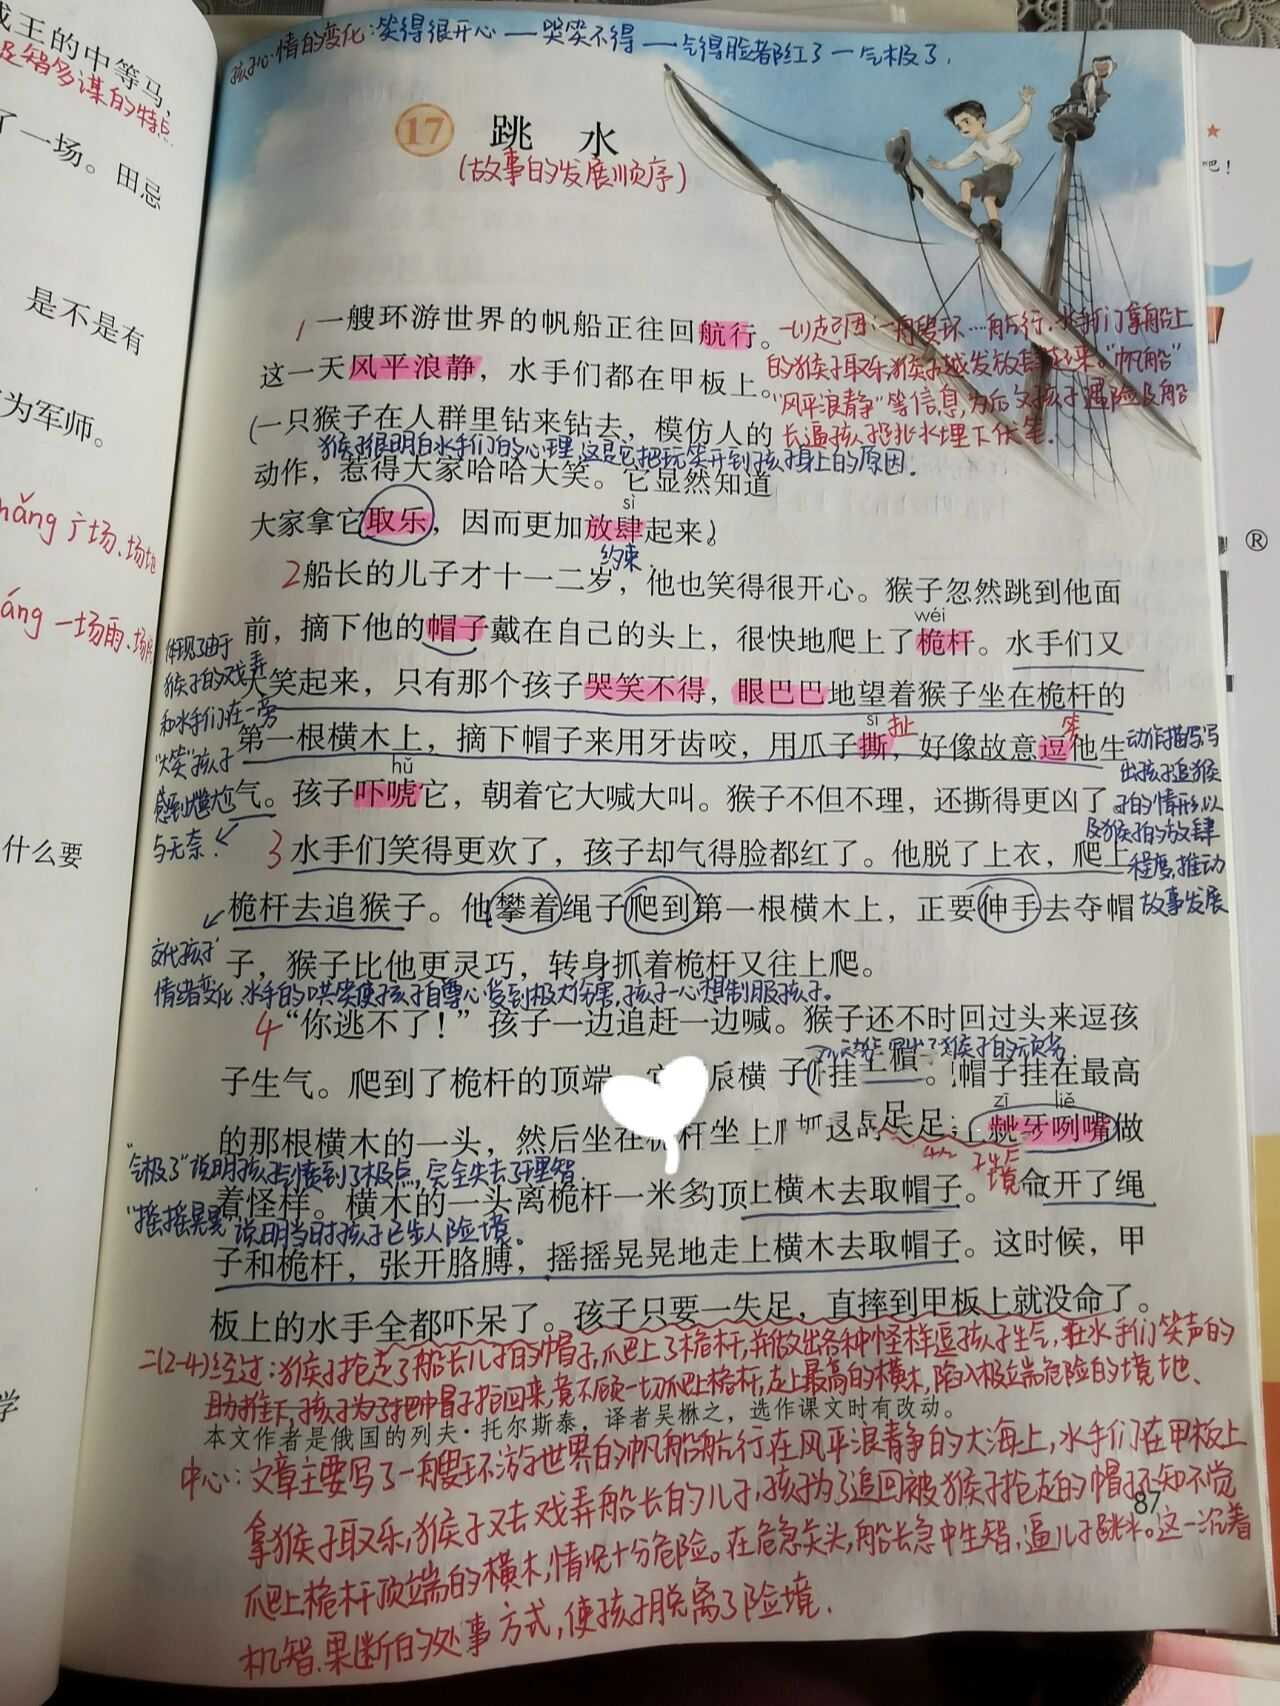 成王的中等马，
足智多谋的特点
了一场。田忌
是不是有
为军师。
广场、场地
一场雨、场
什么要
学
孩子心情的变化：笑得很开心—哭笑不得—气得脸都红了—气极了.
17 跳水
(故事的发展顺序)
1 一艘环游世界的帆船正往回航行。
这一天风平浪静，水手们都在甲板上。
(一只猴子在人群里钻来钻去，模仿人的
动作，惹得大家哈哈大笑。它显然知道
sì
大家拿它取乐，因而更加放肆起来。)
约束.
一(1)起因：一艘环…航行,水手们拿船上
的猴子取乐,猴子越发放肆起来."帆船"
"风平浪静"等信息,为后文孩子遇险及船
长逼孩子跳水埋下伏笔.
猴子很明白水手们的心理,这是它把玩笑开到孩子身上的原因.
2 船长的儿子才十一二岁，他也笑得很开心。猴子忽然跳到他面
wéi
前，摘下他的帽子戴在自己的头上，很快地爬上了桅杆。水手们又
大笑起来，只有那个孩子哭笑不得，眼巴巴地望着猴子坐在桅杆的
sī 扯
第一根横木上，摘下帽子来用牙齿咬，用爪子撕，好像故意逗他生
hǔ
气。孩子吓唬它，朝着它大喊大叫。猴子不但不理，还撕得更凶了
体现了由于
猴子的戏弄
和水手们在一旁
"大笑"孩子
感到尴尬
与无奈.
3 水手们笑得更欢了，孩子却气得脸都红了。他脱了上衣，爬上
桅杆去追猴子。他攀着绳子爬到第一根横木上，正要伸手去夺帽
子，猴子比他更灵巧，转身抓着桅杆又往上爬。
动作描写,写
出孩子追猴
子的情形,以
及猴子的放肆
程度,推动
故事发展
交代孩子
情绪变化 水手的哄笑使孩子自尊心受到极大伤害,孩子一心想制服孩子.
4 "你逃不了！"孩子一边追赶一边喊。猴子还不时回过头来逗孩
子生气。爬到了桅杆的顶端 帽子挂在最高
zī liě
的那根横木的一头，然后坐在 龇牙咧嘴做
"气极了"说明孩子气愤到了极点,完全失去了理智.
着怪样。横木的一头离桅杆一米多 上横木去取帽子。 开了绳
"摇摇晃晃"说明当时孩子已步入险境.
子和桅杆，张开胳膊，摇摇晃晃地走上横木去取帽子。这时候，甲
板上的水手全都吓呆了。孩子只要一失足，直摔到甲板上就没命了。
二(2-4)经过：猴子抢走了船长儿子的帽子,爬上了桅杆,并做出各种怪样逗孩子生气,在水手们笑声的
助推下,孩子为了把帽子抢回来,竟不顾一切爬上桅杆,走上最高的横木,陷入极端危险的境地.
本文作者是俄国的列夫·托尔斯泰，译者吴楙之，选作课文时有改动。
中心：文章主要写了一艘环游世界的帆船航行在风平浪静的大海上,水手们在甲板上
拿猴子取乐,猴子又去戏弄船长的儿子,孩子为了追回被猴子抢走的帽子不知不觉
87
爬上桅杆顶端的横木,情况十分危险。在危急关头,船长急中生智,逼儿子跳水。这一沉着
机智、果断的处事方式,使孩子脱离了险境.